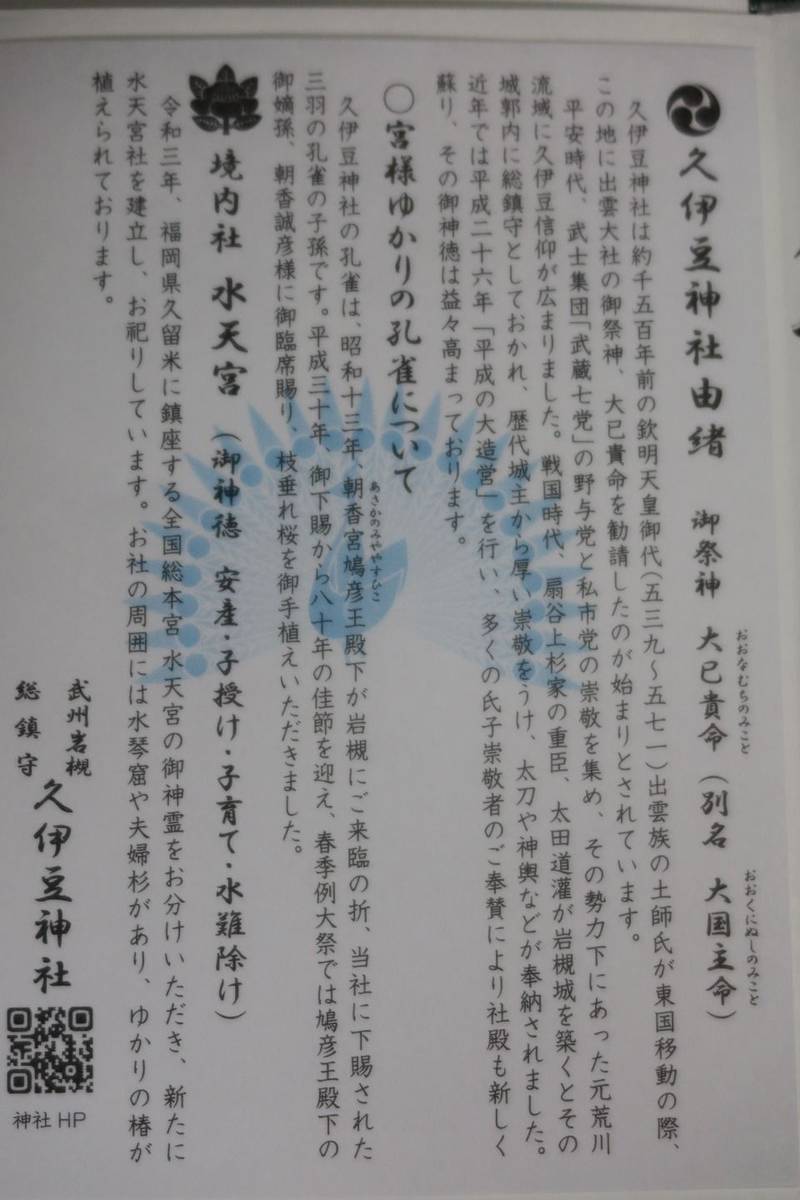 久伊豆神社由緒 御祭神 大已貴命(別名 大国主命)
おおなむちのみこと
おおくにぬしのみこと
久伊豆神社は約千五百年前の欽明天皇御代(五三九～五七一)出雲族の土師氏が東国移動の際、
この地に出雲大社の御祭神、大已貴命を勧請したのが始まりとされています。
平安時代、武士集団「武蔵七党」の野与党と私市党の崇敬を集め、その勢力下にあった元荒川
流域に久伊豆信仰が広まりました。戦国時代、扇谷上杉家の重臣、太田道灌が岩槻城を築くとその
城郭内に総鎮守としておかれ、歴代城主から厚い崇敬をうけ、太刀や神輿などが奉納されました。
近年では平成二十六年「平成の大造営」を行い、多くの氏子崇敬者のご奉賛により社殿も新しく
蘇り、その御神徳は益々高まっております。
○宮様ゆかりの孔雀について
久伊豆神社の孔雀は、昭和十三年、朝香宮鳩彦王殿下が岩槻にご来臨の折、当社に下賜された
あさかのみややすひこ
三羽の孔雀の子孫です。平成三十年、御下賜から八十年の佳節を迎え、春季例大祭では鳩彦王殿下の
御嫡孫、朝香誠彦様に御臨席賜り、枝垂れ桜を御手植えいただきました。
境内社 水天宮 (御神徳 安産・子授け・子育て・水難除け)
令和三年、福岡県久留米に鎮座する全国総本宮 水天宮の御神霊をお分けいただき、新たに
水天宮社を建立し、お祀りしています。お社の周囲には水琴窟や夫婦杉があり、ゆかりの椿が
植えられております。
武州岩槻
総鎮守
久伊豆神社
神社 HP